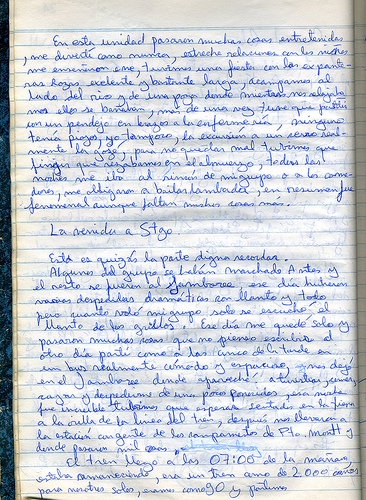 En esta unidad pasaron muchas cosas entretenidas
, me divertí como nunca, estreché relaciones con los
me enseñaron una, tuvimos una fiesta con las
ras Rojas, excelente y bastante larga, acampamos al
lado del río y de una poza donde mientras nos relajaba
mos ellos se bañaban, más de una vez tuve que partir
con un pendejo en brazos a la enfermería, ninguno
tenía piojos, yo tampoco, la excursión a un cerro real
mente, para no quedar mal tuvimos que
fingir que rezábamos en el almuerzo, todas las
noches me iba al rincón de mi grupo o a los come
dores, me obligaron a bailar lambada, en resumen fue
fenomenal aunque faltan muchas cosas más.
La venida a Stgo
Esta es quizás la parte digna recordar.
Algunos del grupo se habían marchado Antes y
el resto se fueron al Jamboree, ese día hubieron
varias despedidas dramáticas con llanto y todo
pero cuando voló mi grupo solo se escuchó el
llanto de los grillos. Ese día me quedé solo y
pasaron muchas cosas que no pienso escribir, al
otro día partí como a las cinco de la tarde en
un bus realmente cómodo y espacioso, nos dejó
en el Jamboree donde aproveché a
y despedirme de unos, esa noche
fue increíble tuvimos que esperar sentados en la tierra
a la orilla de la línea del tren, después nos llevaron a
la estación con gente de los campamentos de Pto. Montt y
donde pasaron mil cosas.
El tren llegó a las 07:00 de la mañana
estaba amaneciendo, era un tren como de 2.000 años
para nosotros solos, éramos como 90 y partimos